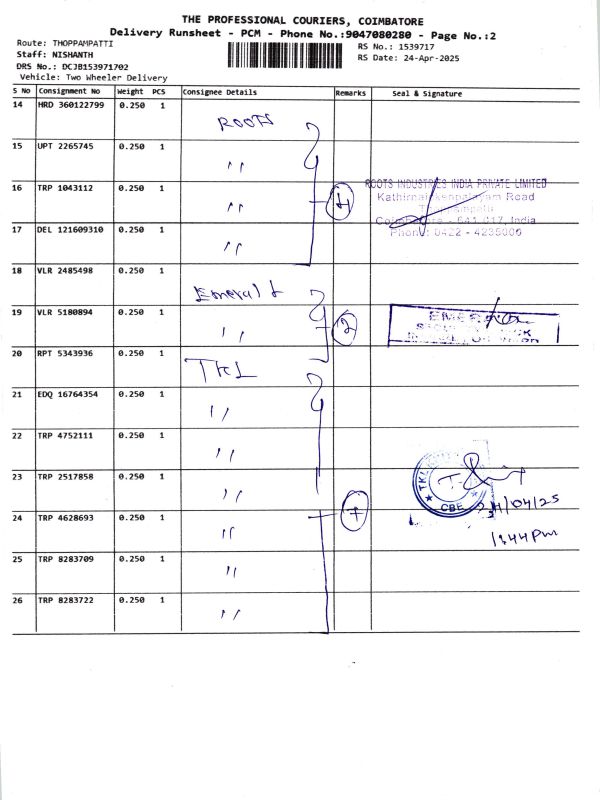 THE PROFESSIONAL COURIERS, COIMBATORE
Delivery Runsheet - PCM - Phone No.:9047080280 - Page No.:2
Route: THOPPAMPATTI
Staff: NISHANTH
DRS No.: DCJB153971702
Vehicle: Two Wheeler Delivery
RS No.: 1539717
RS Date: 24-Apr-2025
S No Consignment No Weight PCS Consignee Details Remarks Seal & Signature
14 HRD 360122799 0.250 1 ROOTS
15 UPT 2265745 0.250 1 ״
16 TRP 1043112 0.250 1 ״ 4
ROOTS INDUSTRIES INDIA PRIVATE LIMITED
Road
Coimbatore - 641 017, India
Phone: 0422 - 4235006
17 DEL 121609310 0.250 1 ״
18 VLR 2485498 0.250 1 Emerald
19 VLR 5180894 0.250 1 ״ 2
20 RPT 5343936 0.250 1 TKL
21 EDQ 16764354 0.250 1 ״
22 TRP 4752111 0.250 1 ״
23 TRP 2517858 0.250 1 ״
TKL
CBE
24/04/25
1:44 PM
24 TRP 4628693 0.250 1 ״ 7
25 TRP 8283709 0.250 1 ״
26 TRP 8283722 0.250 1 ״